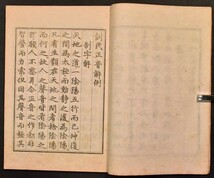 訓民正音解例
制字解
天地之道一陰陽五行而已坤復
之間為太極而動靜之後為陰陽
凡有生類在天地之間者捨陰陽
而何之故人之聲音皆有陰陽之
理顧人不察耳今正音之作初非
智營而力索但因其聲音而極其